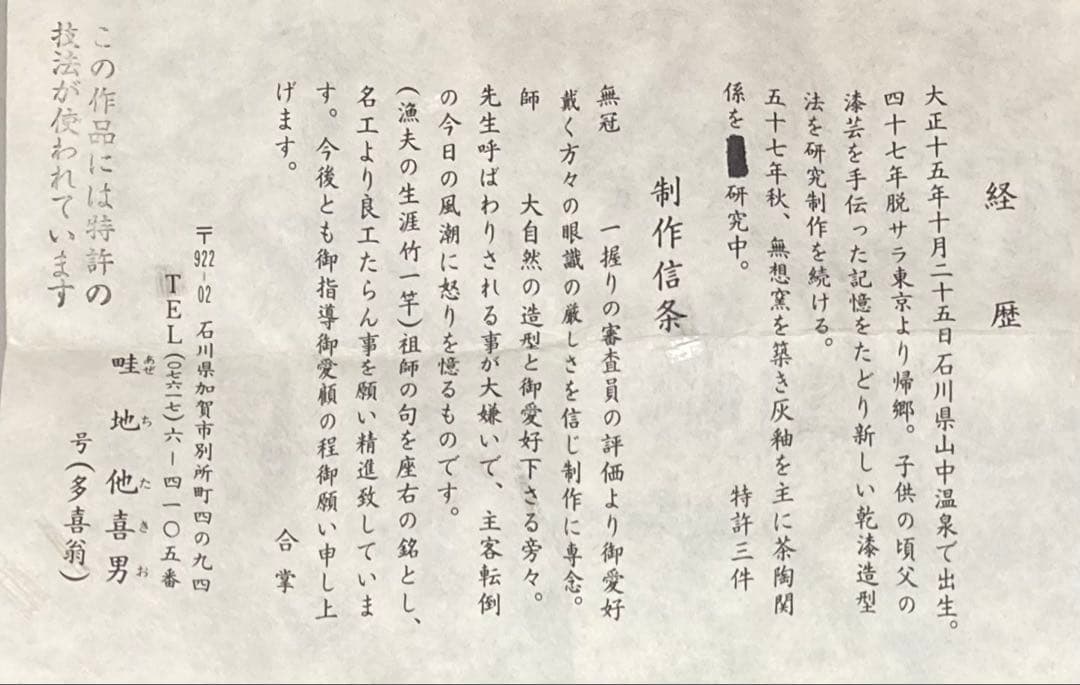 経歴
大正十五年十月二十五日石川県山中温泉で出生。
四十七年脱サラ東京より帰郷。子供の頃父の
漆芸を手伝った記憶をたどり新しい乾漆造型
法を研究制作を続ける。
五十七年秋、無想窯を築き灰釉を主に茶陶関
係を研究中。 特許三件
制作信条
無冠 一握りの審査員の評価より御愛好
戴く方々の眼識の厳しさを信じ制作に専念。
師 大自然の造型と御愛好下さる旁々。
先生呼ばわりされる事が大嫌いで、主客転倒
の今日の風潮に怒りを憶るものです。
(漁夫の生涯竹一竿)祖師の句を座右の銘とし、
名工より良工たらん事を願い精進致していま
す。今後とも御指導御愛顧の程御願い申し上
げます。 合掌
〒922-02 石川県加賀市別所町四の九四
TEL(〇七六一七)六-四一〇五番
畦地他喜男
あぜちたきお
号(多喜翁)
この作品には特許の
技法が使われています